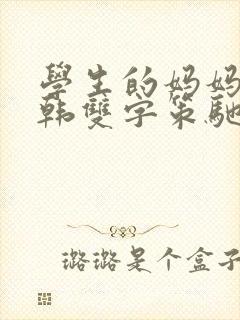 學生的妈妈
韩雙字策馳
璐璐是个盒子